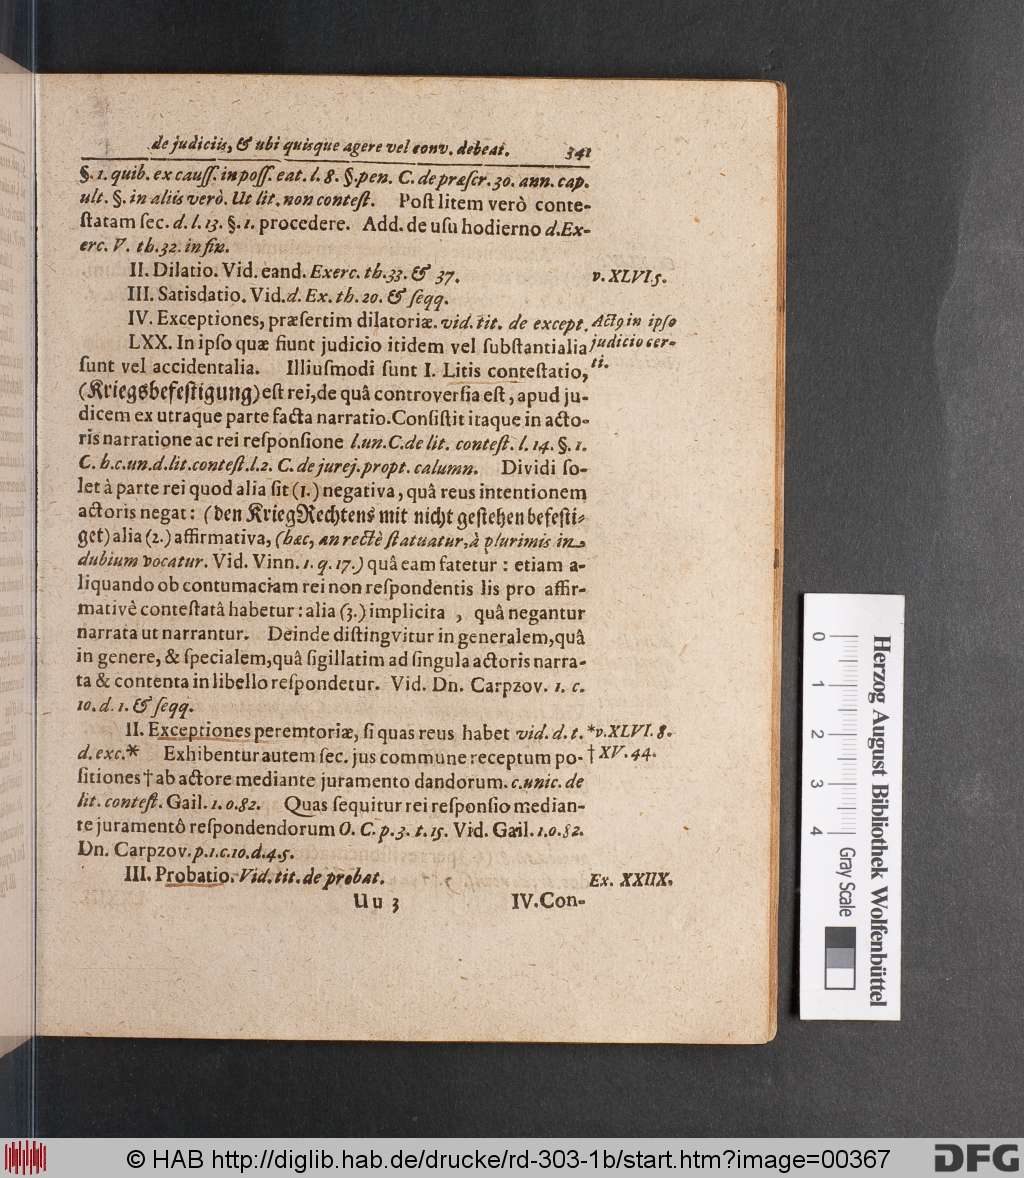 de judiciis, & ubi quisque agere vel conv. debeat. 341
§. 1. quib. ex causſ. in poſſ. eat. l. 8. §. pen. C. de præſcr. 30. ann. cap.
ult. §. in aliis verò. Ut lit. non conteſt. Poſt litem verò conte-
ſtatam ſec. d. l. 13. §. 1. procedere. Add. de uſu hodierno d. Ex-
erc. V. th. 32. in fin.
II. Dilatio. Vid. eand. Exerc. th. 33. & 37. v. XLVI 5.
III. Satisdatio. Vid. d. Ex. th. 20. & ſeqq.
IV. Exceptiones, præſertim dilatoriæ. vid. tit. de except.
LXX. In ipſo quæ fiunt judicio itidem vel ſubſtantialia
ſunt vel accidentalia. Illiuſmodi ſunt I. Litis conteſtatio,
Actꝰ in ipſo
judicio cer-
ti.
(Kriegsbefeſtigung) eſt rei, de quâ controverſia eſt, apud ju-
dicem ex utraque parte facta narratio. Conſiſtit itaque in acto-
ris narratione ac rei reſponſione l. un. C. de lit. conteſt. l. 14. §. 1.
C. h. c. un. d. lit. conteſt. l. 2. C. de jurej. propt. calumn. Dividi ſo-
let à parte rei quod alia ſit (1.) negativa, quâ reus intentionem
actoris negat: (den Krieg Rechtens mit nicht geſtehen befeſti-
get) alia (2.) affirmativa, (hæc, an rectè ſtatuatur, à plurimis in
dubium vocatur. Vid. Vinn. 1. q. 17.) quâ eam fatetur: etiam a-
liquando ob contumaciam rei non reſpondentis lis pro affir-
mativè conteſtatâ habetur: alia (3.) implicita, quâ negantur
narrata ut narrantur. Deinde diſtingvitur in generalem, quâ
in genere, & ſpecialem, quâ ſigillatim ad ſingula actoris narra-
ta & contenta in libello reſpondetur. Vid. Dn. Carpzov. 1. c.
10. d. 1. & ſeqq.
II. Exceptiones peremtoriæ, ſi quas reus habet vid. d. t. *v. XLVI. 8.
d. exc.* Exhibentur autem ſec. jus commune receptum po- † XV. 44.
ſitiones † ab actore mediante juramento dandorum. c. unic. de
lit. conteſt. Gail. 1. o. 82. Quas ſequitur rei reſponſio median-
te juramentô reſpondendorum O. C. p. 3. t. 15. Vid. Gail. 1. o. 82.
Dn. Carpzov. p. 1. c. 10. d. 4. 5.
III. Probatio. Vid. tit. de probat. Ex. XXIIX.
Uu 3 IV. Con-
0 1 2 3 4
Gray Scale
Herzog August Bibliothek Wolfenbüttel
© HAB http://diglib.hab.de/drucke/rd-303-1b/start.htm?image=00367
DFG